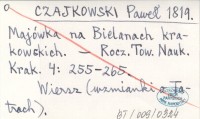 CZAJKOWSKI Paweł 1819.
Majówka na Bielanach kra-
kowskich. — Rocz. Tow. Nauk.
Krak. 4: 255-265.
Wiersz (wzmianki o Ta-
trach).
BT/009/0324